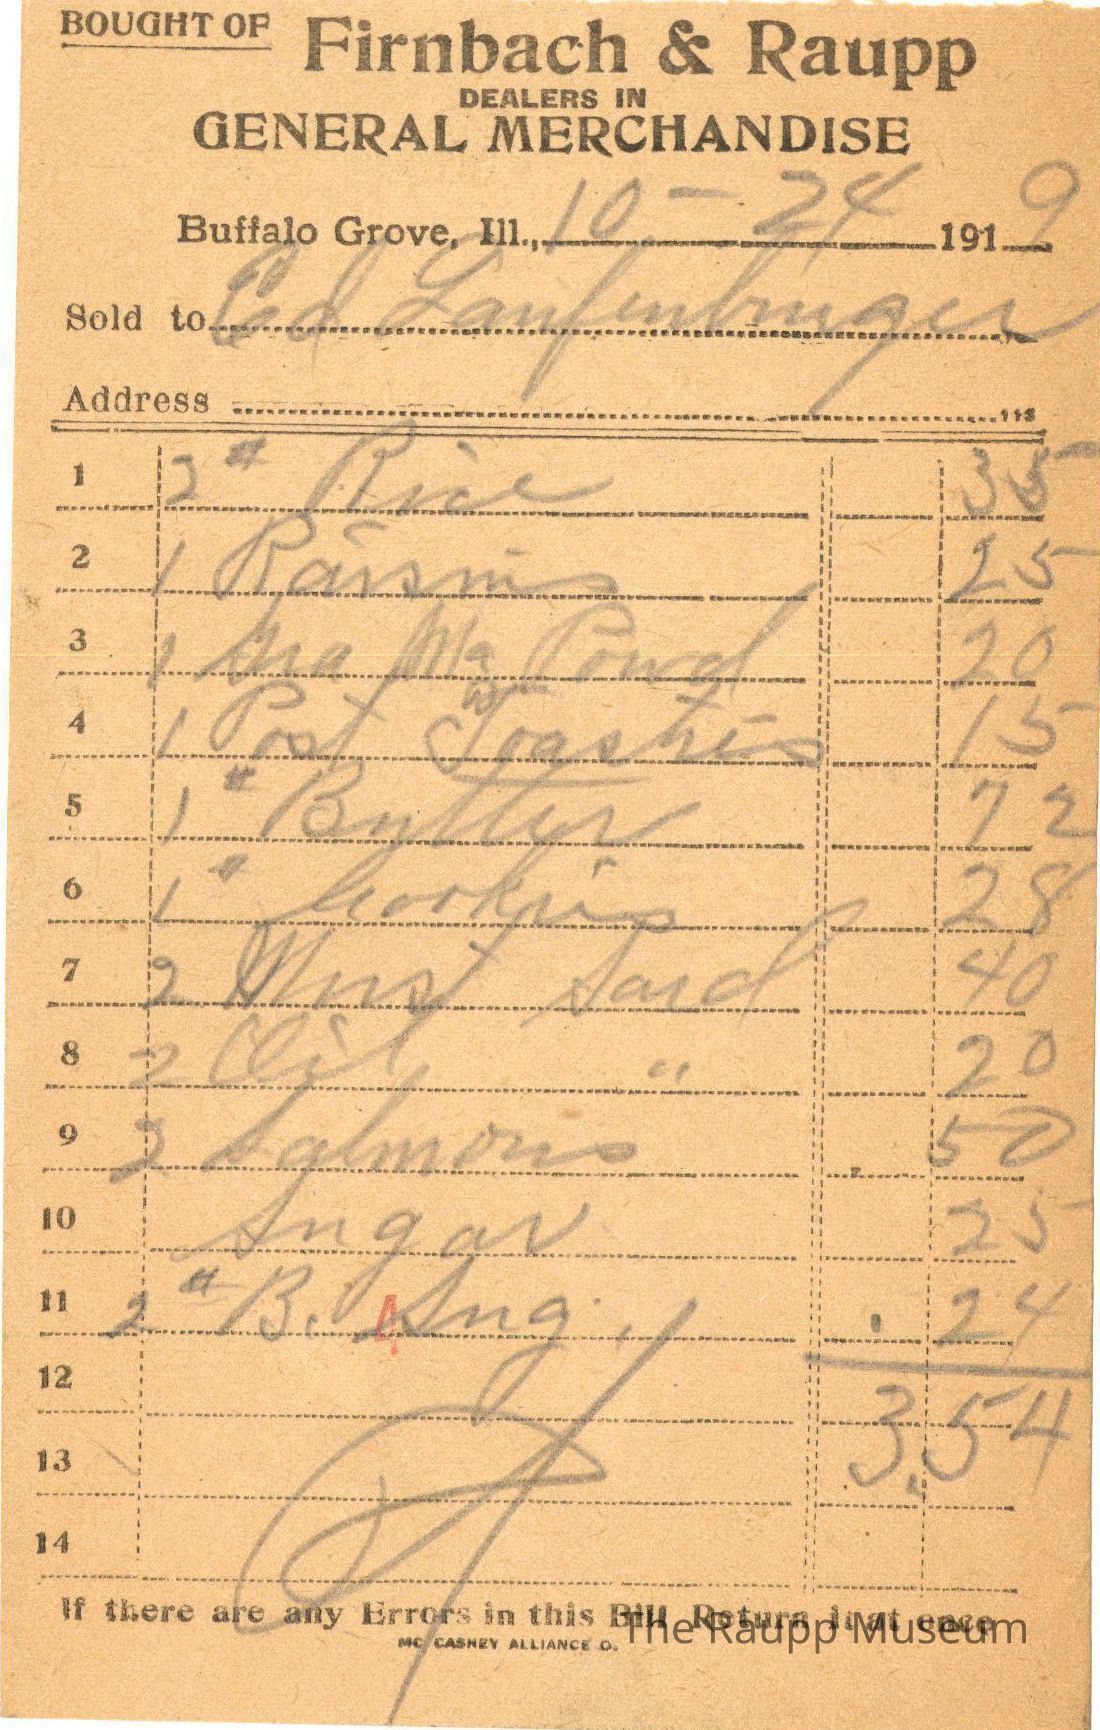 BOUGHT OF Firnbach & Raupp
DEALERS IN
GENERAL MERCHANDISE
Buffalo Grove, Ill., 10 - 24 1919
Sold to Ed Laufenburger
Address 113
1 2 # Rice 35
2 1 Raisins 25
3 1 Gra Wa Powd 20
4 1 Post Toasties 15
5 1 # Butter 72
6 1 # Cookies 28
7 2 Must Sard 40
8 2 Oil " 20
9 3 Salmons 50
10 Sugar 25
11 2 # B. Sug. 24
4
12 3.54
13
14
If there are any Errors in this Bill Return it at once
MC CASKEY ALLIANCE O.
The Raupp Museum